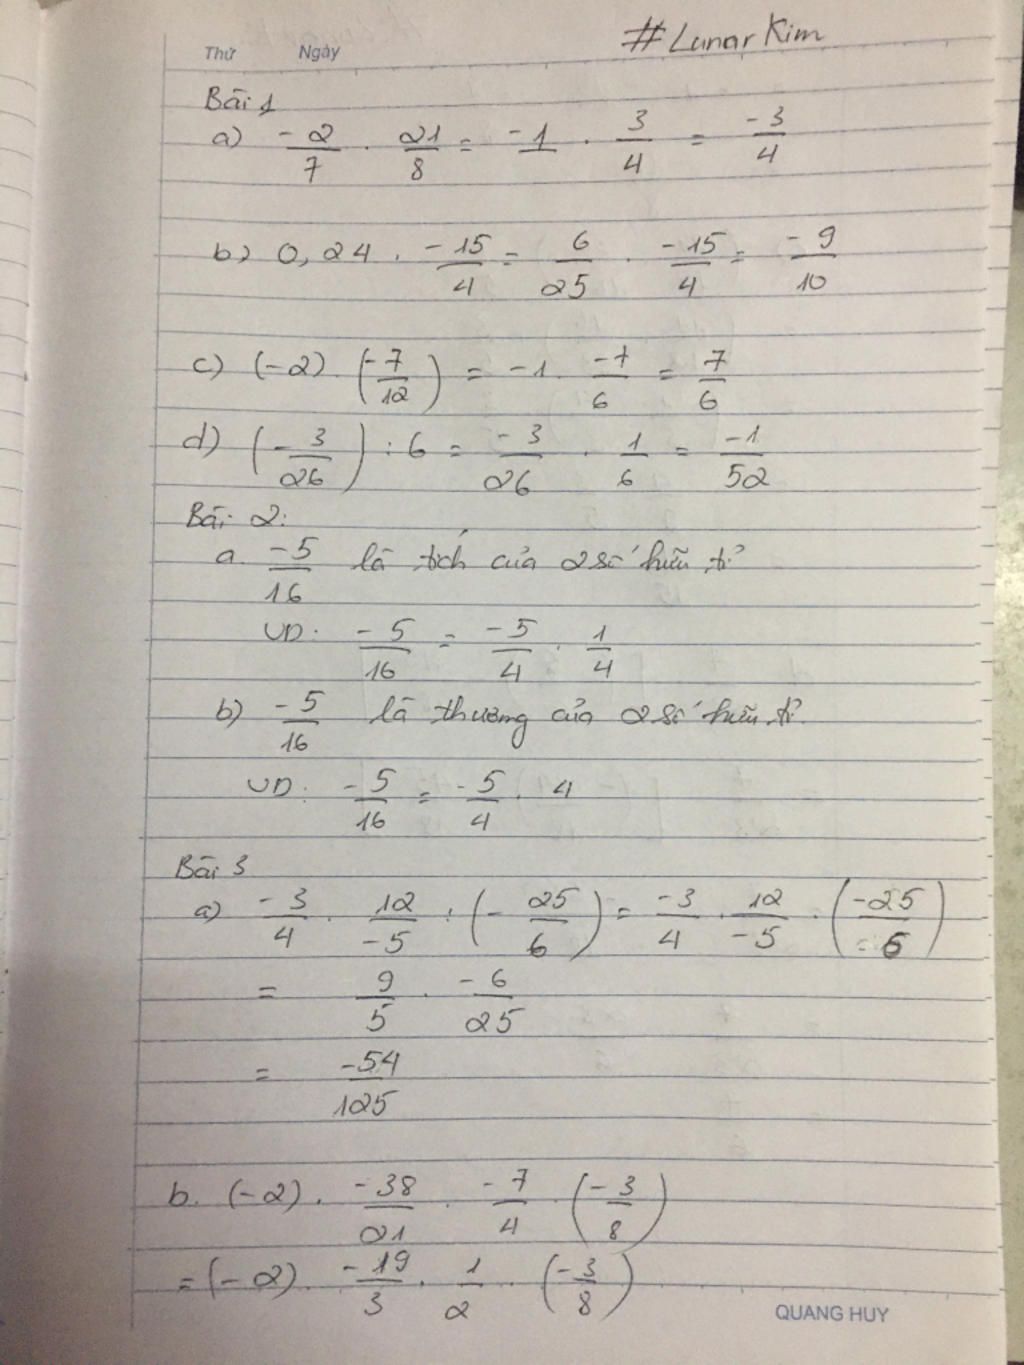 # Lunar Kim
Thứ Ngày
Bài 1
a) -2/7 . 21/8 = -1/ . 3/4 = -3/4
b) 0,24 . -15/4 = 6/25 . -15/4 = -9/10
c) (-2) . (-7/12) = -1 . -7/6 = 7/6
d) (-3/26) : 6 = -3/26 . 1/6 = -1/52
Bài 2:
a. -5/16 là tích của 2 số hữu tỉ
VD: -5/16 = -5/4 . 1/4
b) -5/16 là thương của 2 số hữu tỉ
VD: -5/16 = -5/4 . 4
Bài 3
a) -3/4 . 12/-5 : (-25/6) = -3/4 . 12/-5 . (-25/6)
= 9/5 . -6/25
= -54/125
b. (-2) . -38/21 . -7/4 . (-3/8)
= (-2) . -19/3 . 1/2 . (-3/8)
QUANG HUY